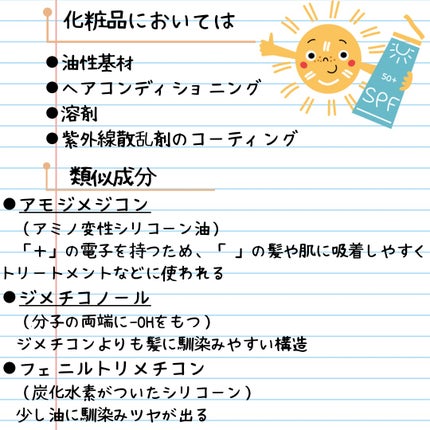 化粧品においては
●油性基材
●ヘアコンディショニング
●溶剤
●紫外線散乱剤のコーティング
50+
SPF
類似成分
●アモジメジコン
(アミノ変性シリコーン油)
「+」の電子を持つため、「 」の髪や肌に吸着しやすく
トリートメントなどに使われる
●ジメチコノール
(分子の両端に-OHをもつ)
ジメチコンよりも髪に馴染みやすい構造
●フェニルトリメチコン
(炭化水素がついたシリコーン)
少し油に馴染みツヤが出る